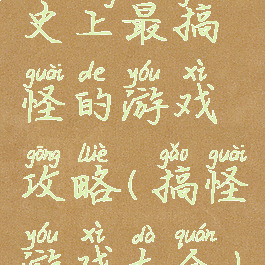 史上最搞
guài de yóu xì
怪的游戏
gōng lüè gǎo guài
攻略(搞怪
yóu xì dà quán
游戏大全)